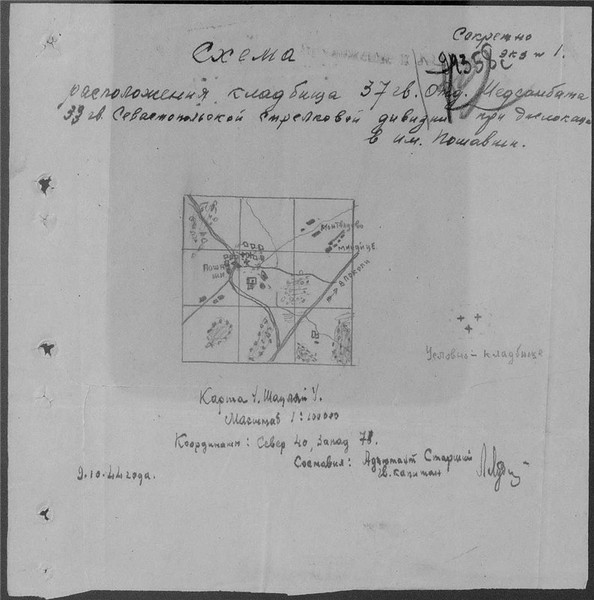 Секретно
экз № 1.
Схема
расположения кладбища 37 гв. Отд. Медсанбата
33 гв. Севастопольской стрелковой дивизии при дислокации
в им. Пошавши.
Пошавши
В Покопи
Условно - кладбище
Карта У. Шауляй У.
Масштаб 1:100000
Координаты: Север 40, Запад 78.
Составил: Адъютант Старший
гв. капитан
9.10.44 года.